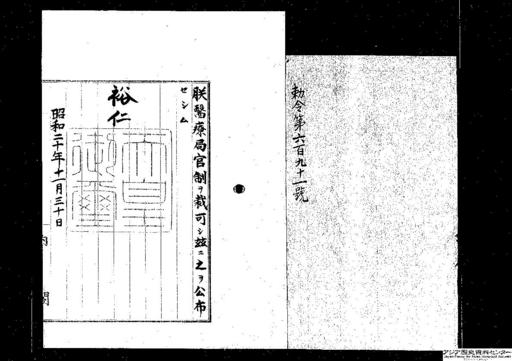 勅令第六百九十一號
朕醫療局官制ヲ裁可シ玆ニ之ヲ公布
セシム
裕仁
天皇御璽
昭和二十年十一月三十日
内閣
アジア歴史資料センター